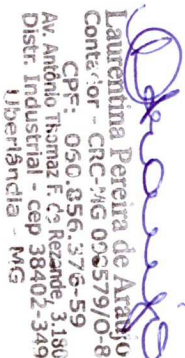 Laurentina Pereira de Araujo
Contador - CRC-MG 090579/0-8
CPF: 050.856.376-59
Av. Antônio Thomaz F. de Rezende, 3.180
Distr. Industrial - cep 38402-349
Uberlândia - MG